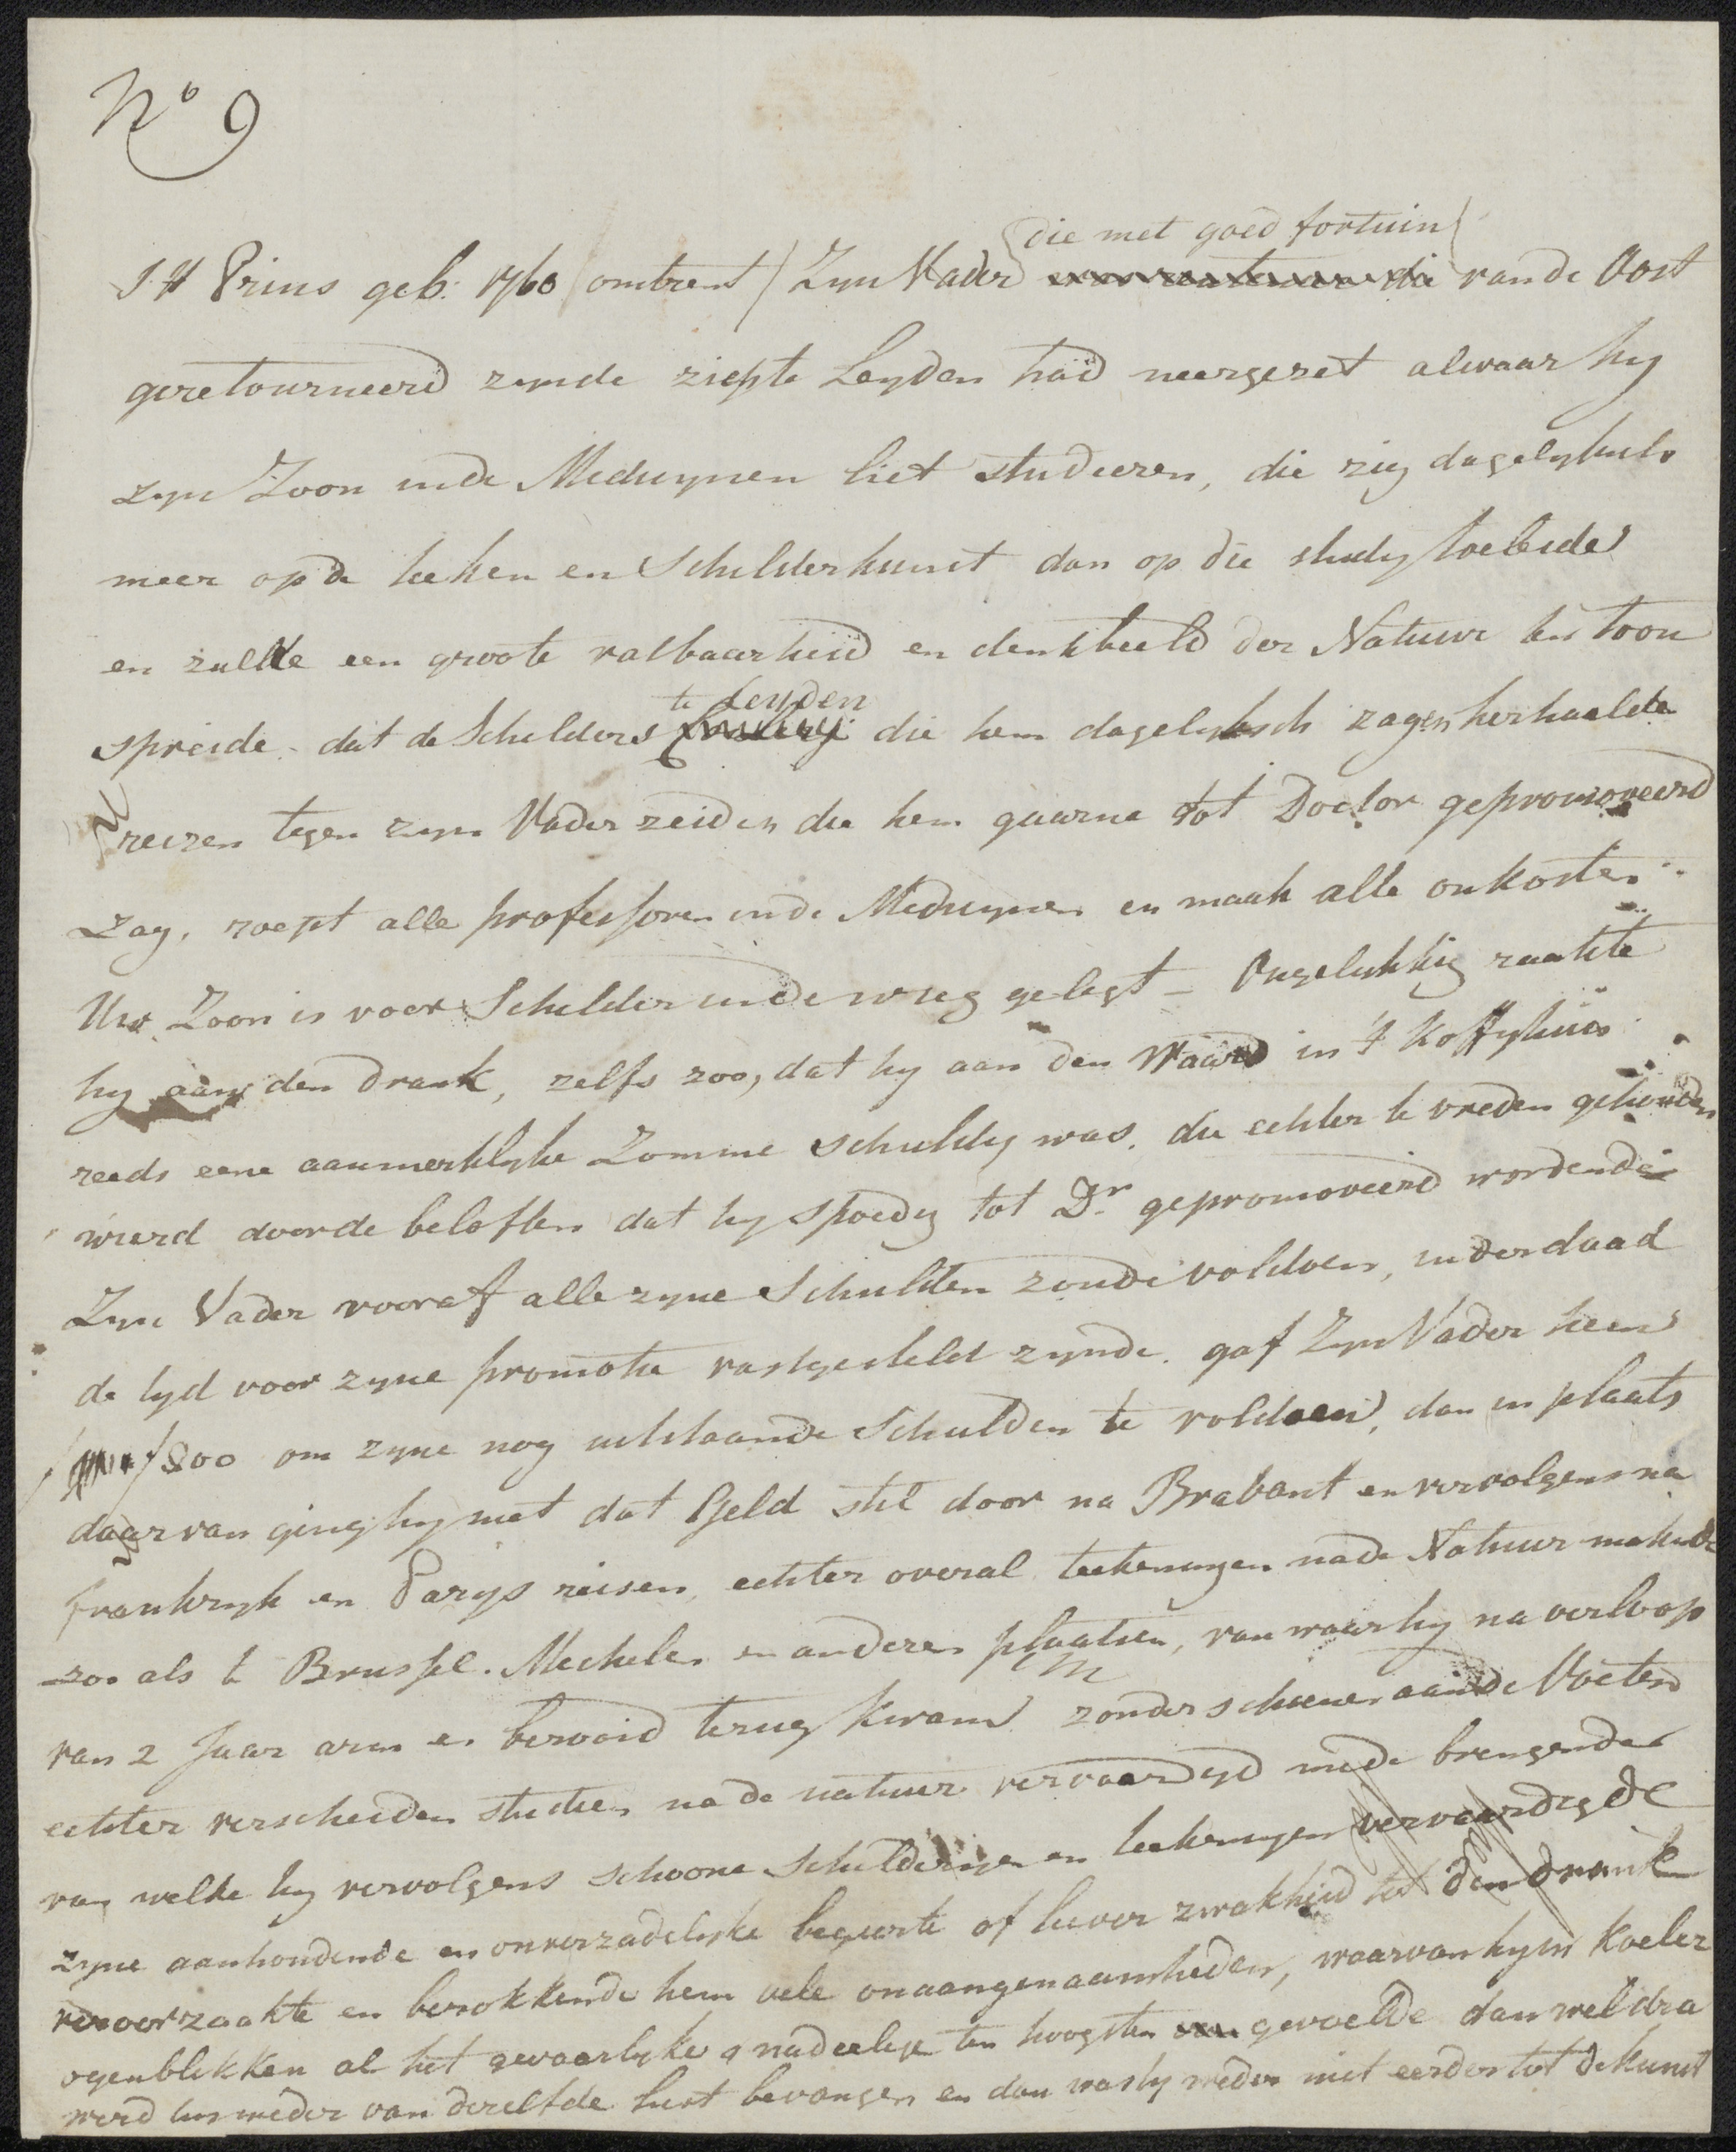 No 9
die met goed fortuin
J H Prins geb: 1760 / omtrent / Zyn Vader van de Oost
geretourneerd zynde zig te Leyden had neergezet alwaar hy
zyn Zoon in de Medicynen liet studeeren, die zig dagelyks
meer op de teken en Schilderkunst dan op die study toeleide
en zulke een groote vatbaarheid en denkbeeld der Natuur ten toon
te Leyden
spreide, dat de Schilders die hem dagelyksch zagen herhaalde
reizen tegen zyn Vader zeiden die hem gaarne tot Doctor gepromoveerd
zag, roept alle professoren in de Medicynen en maak alle onkosten
Uw Zoon is voor Schilder in de wieg gelegt – Ongelukkig raakte
hy aan den drank, zelfs zoo, dat hy aan den Waard in 't Koffyhuis
reeds eene aanmerklyke Zomme schuldig was, die echter te vreden gehouden
wierd door de beloften dat hy spoedig tot Dr gepromoveerd wordende
Zyn Vader vooraf alle zyne Schulden zoude voldoen, inderdaad
de tyd voor zyne promotie vastgesteld zynde, gaf Zyn Vader hem
ƒ 800 om zyne nog uitstaande Schulden te voldoen, dan in plaats
daar van ging hy met dat Geld stil door na Brabant en vervolgens na
frankryk en Parys reisen, echter overal teekeningen na de Natuur makende
zoo als te Brussel, Mechelen en anderen plaatsen, van waar hy na verloop
van 2 Jaar arm en berooid terug kwam zonder schoenen aan de Voeten
echter verscheiden studien na de natuur vervaardigd mede brengende
van welke hy vervolgens schoone schilderyen en teekeningen vervaardigde
zyne aanhoudende en onverzadelyke begeerte of liever zwakheid tot den drank
veroorzaakte en berokkende hem vele onaangenaamheden, waarvan hy in koeler
ogenblikken al het gevaarlyke & nadeelige ten hoogsten gevoelde dan weldra
werd hy weder van dezelfde lust bevangen en dan was hy weder niet eerder tot de kunst